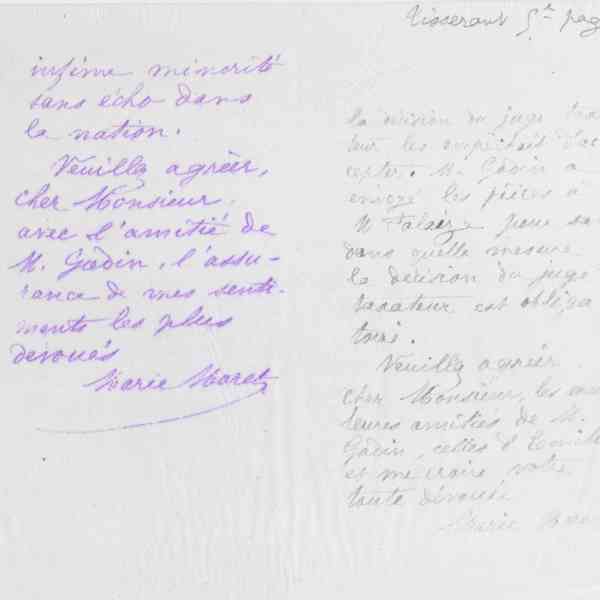 Tisserant 5e pag
infime minorité
sans écho dans
la nation.
Veuillez agréer,
cher Monsieur,
avec l'amitié de
M. Godin, l'assu-
rance de mes senti-
ments les plus
dévoués
Marie Moret
la décision du juge taxa
teur les empêchait d'ac
cepter. M. Godin a
envoyé les pièces à
M. Falaize pour sa
dans quelle mesure
la décision du juge
taxateur est obliga
toire.
Veuillez agréer
cher Monsieur, les meil
leures amitiés de M.
Godin, celles d'Emilie
et me croire votre
toute dévouée
Marie Moret